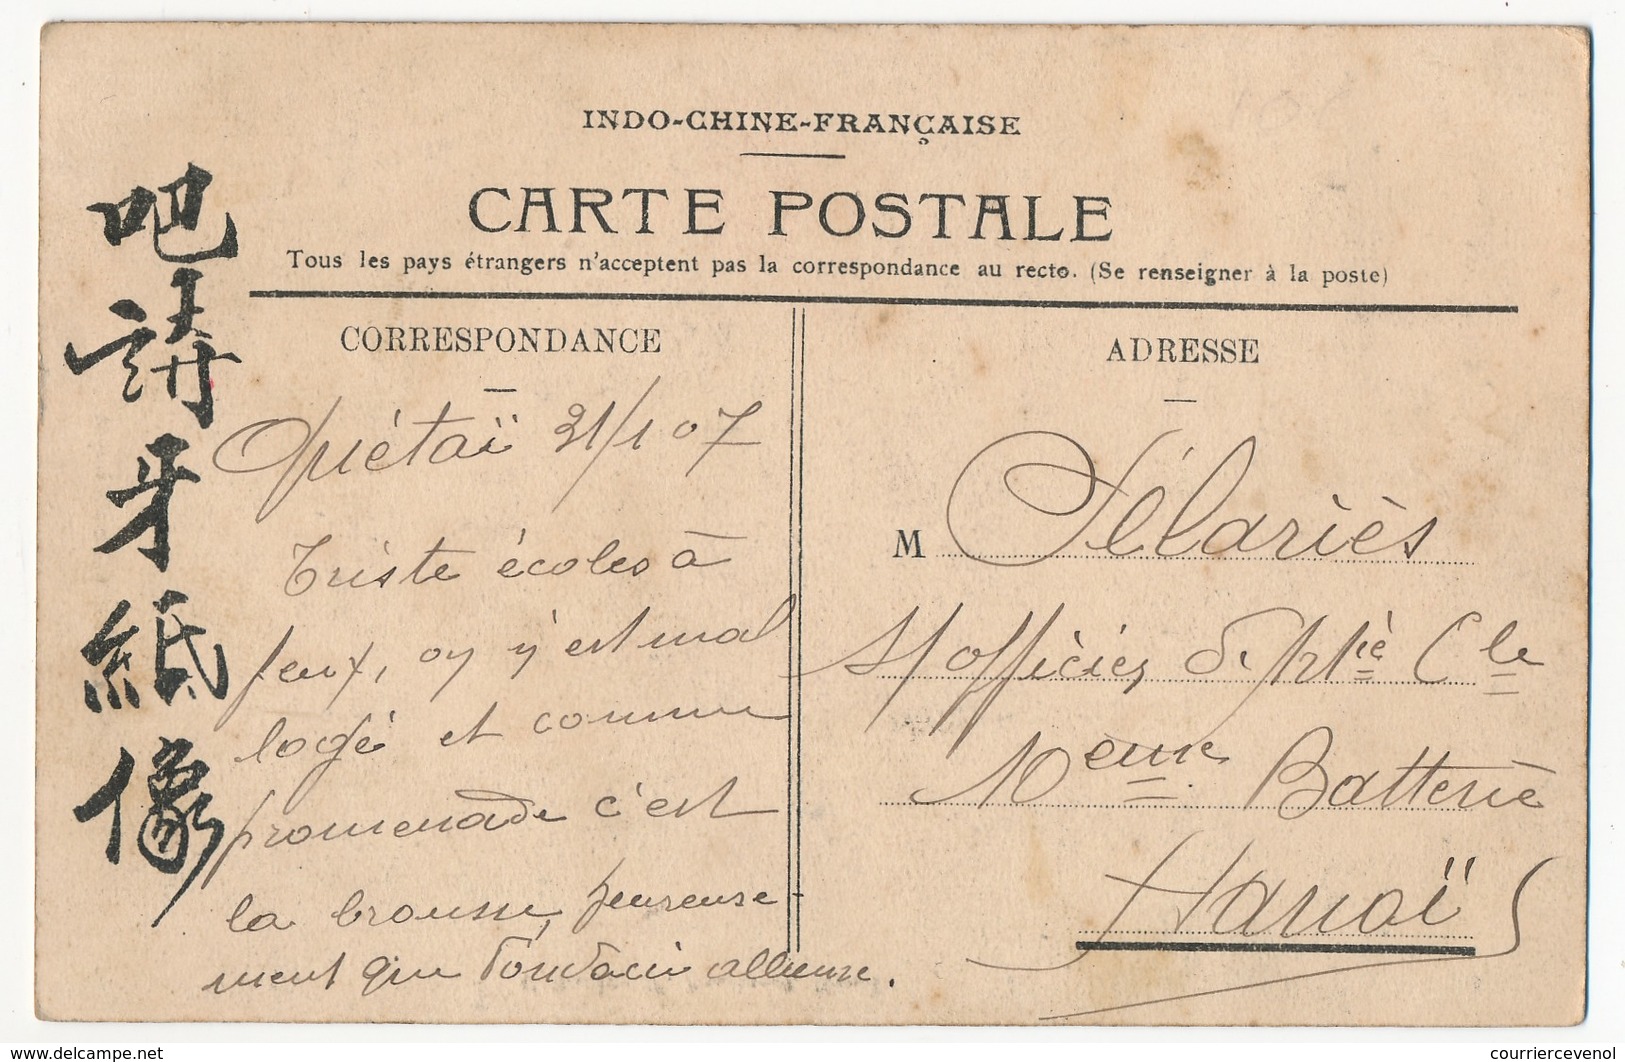 INDO-CHINE-FRANÇAISE
CARTE POSTALE
Tous les pays étrangers n'acceptent pas la correspondance au recto. (Se renseigner à la poste)
吧
講
牙
紙
像
CORRESPONDANCE
Quiétaï 31/1 07
Triste écoles à
feux, on y est mal
logé et comme
promenade c'est
la brousse, heureuse-
ment que
ADRESSE
M Sélariès
S/officier
10eme Batterie
Hanoï
www.delcampe.net
courriercevenol